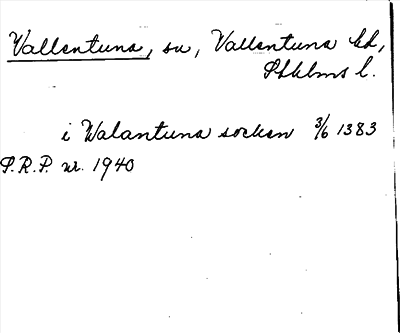 Vallentuna, sn, Vallentuna hd,
Sthlms l.
i Walantuna sockan 3/6 1383
S.R.P. nr. 1940